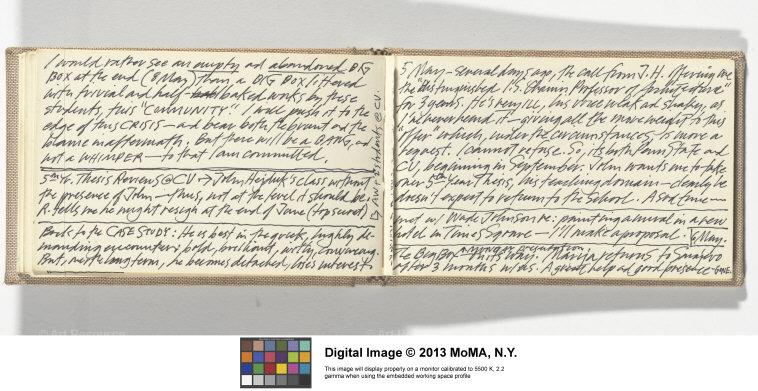 I would rather see an empty and abandoned BIG
BOX at the end (8 May) than a BIG BOX littered
with trivial and half-baked works by these
students, this "COMMUNITY." I will push it to the
edge of this CRISIS — and bear both the brunt and the
blame in aftermath. But there will be a BANG, and
not a WHIMPER — to that I am committed.
5th Yr. Thesis Reviews @ CU → John Hejduk's class without
the presence of John — thus, not at the level it should be.
R. tells me he might resign at the end of June (top secret)
Back to the CASE STUDY: He is best in the quick, highly de-
manding encounter: bold, brilliant, witty, convincing.
But, in the long term, he becomes detached, loses interest.
students @ CU.
5 May — several days ago, the call from J.H. offering me
the "distinguished I.S. Chanin Professor of Architecture"
for 3 years. He's very ill, his voice weak and shaky, as
I've never heard it — giving all the more weight to this
"offer" which, under the circumstances, is more a
request. I cannot refuse. So, its both Penn State and
CU, beginning in September. John wants me to take
over 5th Year Thesis, his teaching domain — clearly he
doesn't expect to return to the School. A sad time —
met w/ Wade Johnson re: painting a mural in a new
hotel in Times Square — I'll make a proposal. 6 May.
The Big Box — on its way. Marija returns to Sarajevo
after 3 months w/ us. A great help and good presence — GONE.
© Art Resource
Digital Image © 2013 MoMA, N.Y.
This image will display properly on a monitor calibrated to 5500 K, 2.2
gamma when using the embedded working space profile